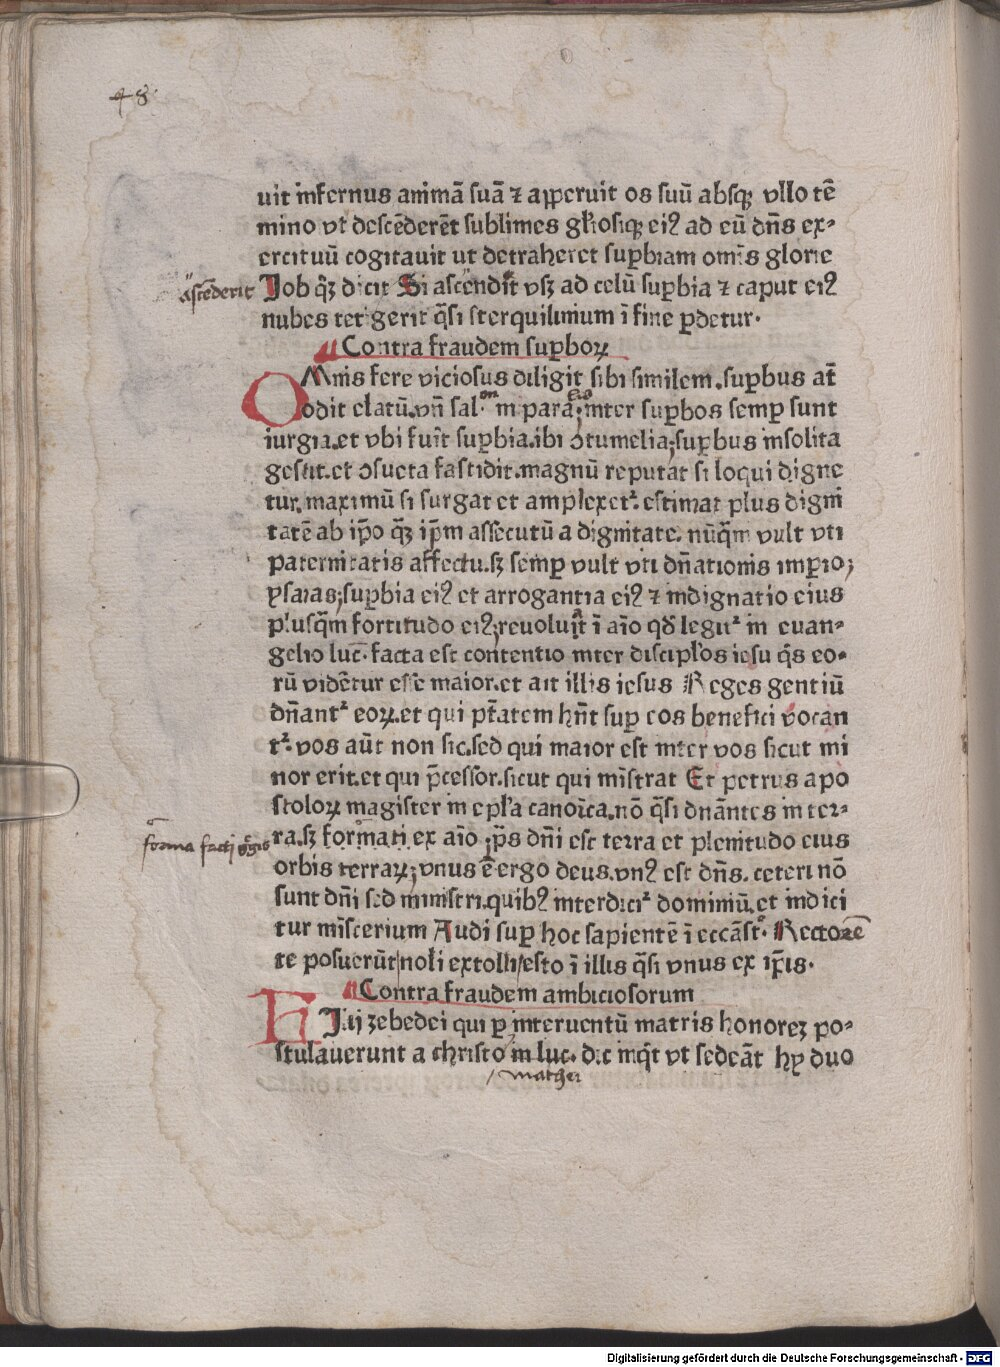 48
uit infernus animā suā ⁊ apperuit os suū absqꝫ vllo tē
mino vt descēderēt sublimes gl̄iosiqꝫ eiꝰ ad eū dn̄s ex-
ercituū cogitauit ut detraheret suꝑbiam omīs glorie
ascēderit Job q̄ꝫ dicit Si ascēndit vsꝫ ad celū suꝑbia ⁊ caput eiꝰ
nubes tetigerit q̄si sterquilinium ī fine ꝑdetur.
Contra fraudem suꝑboꝝ
OMnis fere viciosus diligit sibi similem. suꝑbus at̄
odit elatū. vn̄ sal. in para. inter suꝑbos semꝑ sunt
iurgia. et vbi fuit suꝑbia. ibi ↄtumelia; suꝑbus insolita
gestit. et ↄsueta fastidit. magnū reputat si loqui digne
tur. maximū si surgat et amplexetᷣ. estimat plus digni
tatē ab ip̄o q̄ꝫ ip̄m assecutū a dignitate. nūq̄m vult vti
paternitatis affectu. sꝫ semꝑ vult vti dn̄ationis imꝑio;
ysaias; suꝑbia eiꝰ et arrogantia eiꝰ ⁊ indignatio eius
plusq̄m fortitudo eiꝰ; reuoluit ī aīo qđ legitᷣ in euan-
gelio luc. facta est contentio inter discipl̄os iesu q̄s eo-
rū vidētur esse maior. et ait illis iesus Reges gentiū
dn̄antᷣ eoꝝ. et qui pt̄atem hn̄t suꝑ eos benefici vocan
tᷣ. vos aūt non sic. sed qui maior est inter vos sicut mi
nor erit. et qui p̄cessor. sicut qui mīstrat Et petrus apo
stoloꝝ magister in epl̄a canoīca. nō q̄si dn̄antes in ter-
forma facti gregis ra. sꝫ formati ex aīo ; ip̄s dn̄i est terra et plenitudo eius
orbis terraꝝ; vnus ē ergo deus. vnꝰ est dn̄s. ceteri nō
sunt dn̄i sed ministri. quibꝰ interdicitᷣ dominiū. et indici
tur mīscerium Audi suꝑ hoc sapientē ī eccāst. Rectorē
te posuerūt noli extolli esto ī illis q̄si vnus ex ip̄is.
Contra fraudem ambiciosorum
FIlij zebedei qui ꝑ interuentū matris honorez po-
stulauerunt a christo in luc. dic inq̄t vt sedeāt hy duo
mather
Digitalisierung gefördert durch die Deutsche Forschungsgemeinschaft - DFG